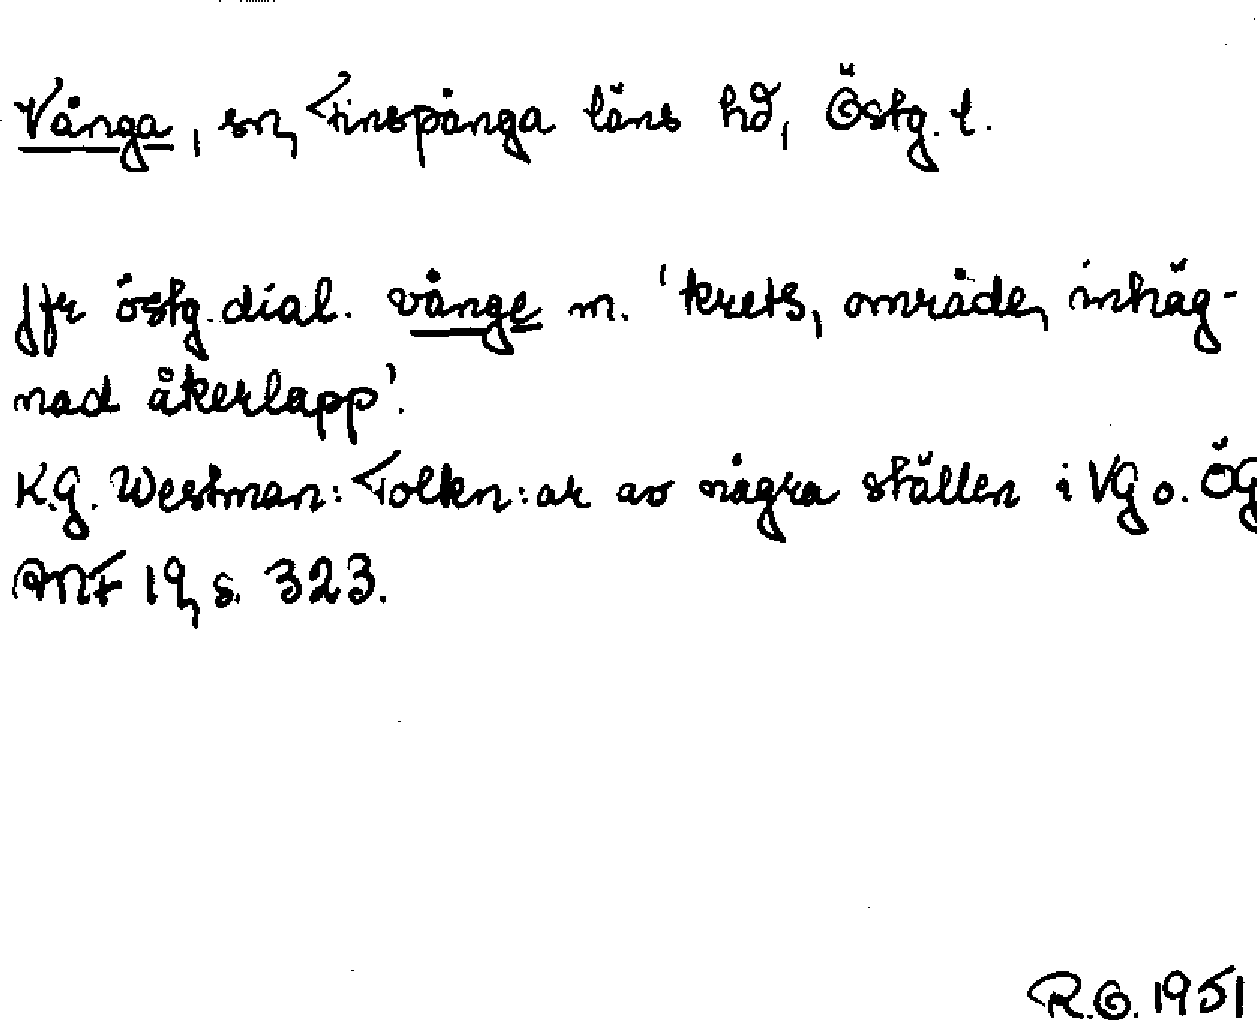 Vånga, sn, Finspånga läns hd, Östg. l.
Jfr östg. dial. vånge m. 'krets, område, inhäg-
nad åkerlapp'.
K.G. Westman: Folkn:ar av några ställen i VG o. ÖG
ANF 19, s. 323.
R.O. 1951